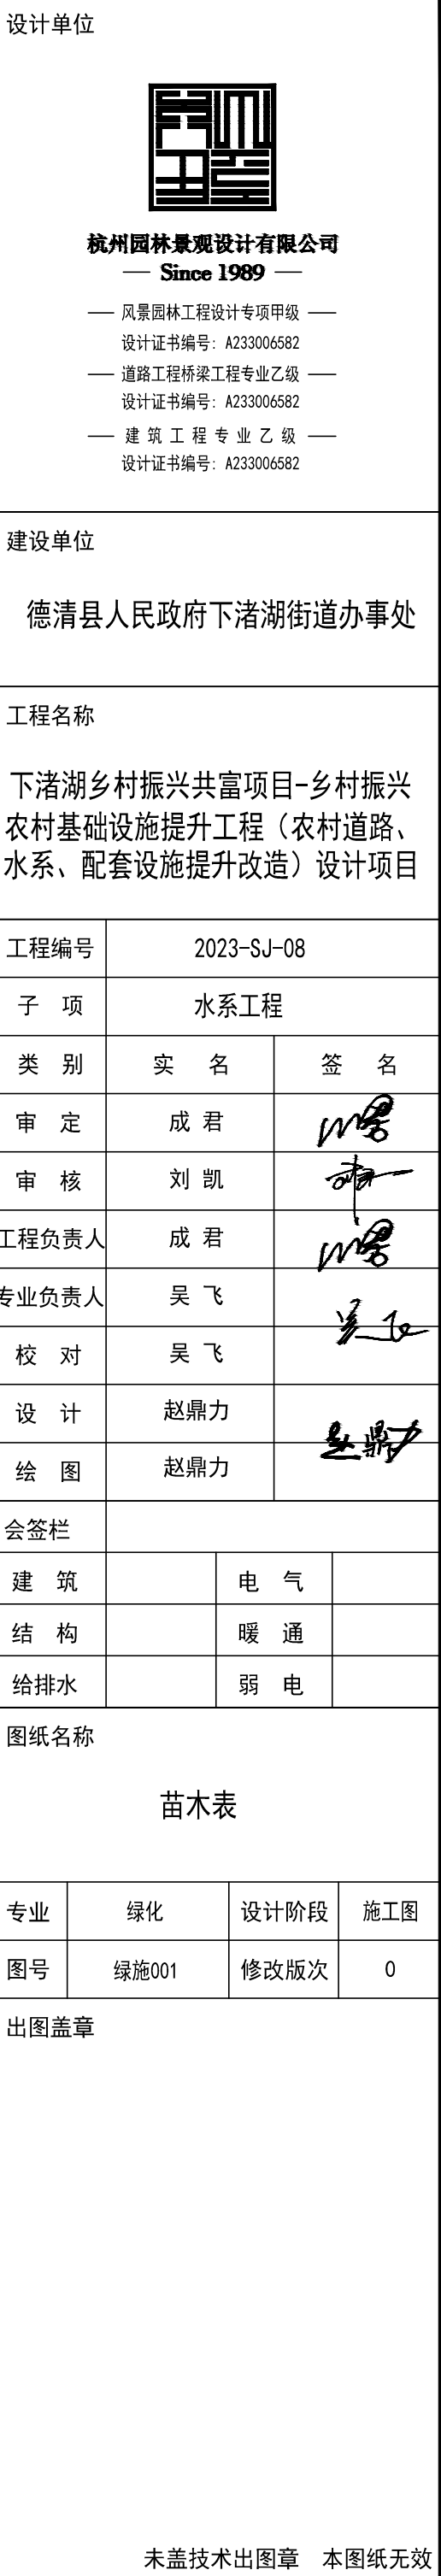 设计单位
杭州园林景观设计有限公司
— Since 1989 —
— 风景园林工程设计专项甲级 —
设计证书编号: A233006582
— 道路工程桥梁工程专业乙级 —
设计证书编号: A233006582
— 建 筑 工 程 专 业 乙 级 —
设计证书编号: A233006582
建设单位
德清县人民政府下渚湖街道办事处
工程名称
下渚湖乡村振兴共富项目-乡村振兴
农村基础设施提升工程（农村道路、
水系、配套设施提升改造）设计项目
工程编号 2023-SJ-08
子 项 水系工程
类 别 实 名 签 名
审 定 成 君
审 核 刘 凯
工程负责人 成 君
专业负责人 吴 飞
吴飞
校 对 吴 飞
设 计 赵鼎力
赵鼎力
绘 图 赵鼎力
会签栏
建 筑 电 气
结 构 暖 通
给排水 弱 电
图纸名称
苗木表
专业 绿化 设计阶段 施工图
图号 绿施001 修改版次 0
出图盖章
未盖技术出图章 本图纸无效